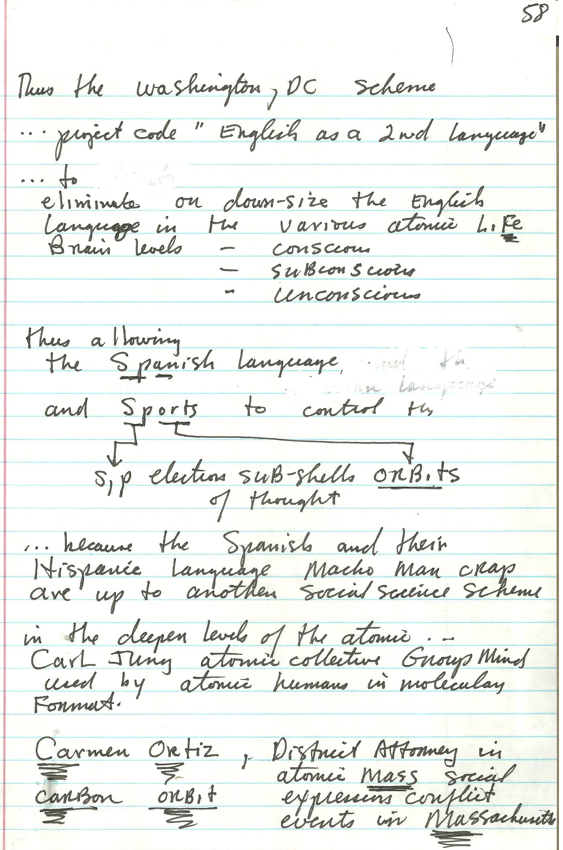 58
Thus the Washington, DC scheme
... project code "English as a 2nd Language"
... to
eliminate or down-size the English
Language in the various atomic LiFe
Brain levels - conscious
- subconscious
- unconscious
thus allowing
the Spanish Language,
and Sports to control the
s,p electron sub-shells ORBits
of thought
... because the Spanish and their
Hispanic Language Macho Man crap
are up to another social science scheme
in the deeper levels of the atomic . -
Carl Jung atomic collective Group Mind
used by atomic humans in molecular
Format.
Carmen Ortiz , District Attorney in
atomic Mass social
CARBon ORBit expression conflict
events in Massachusetts